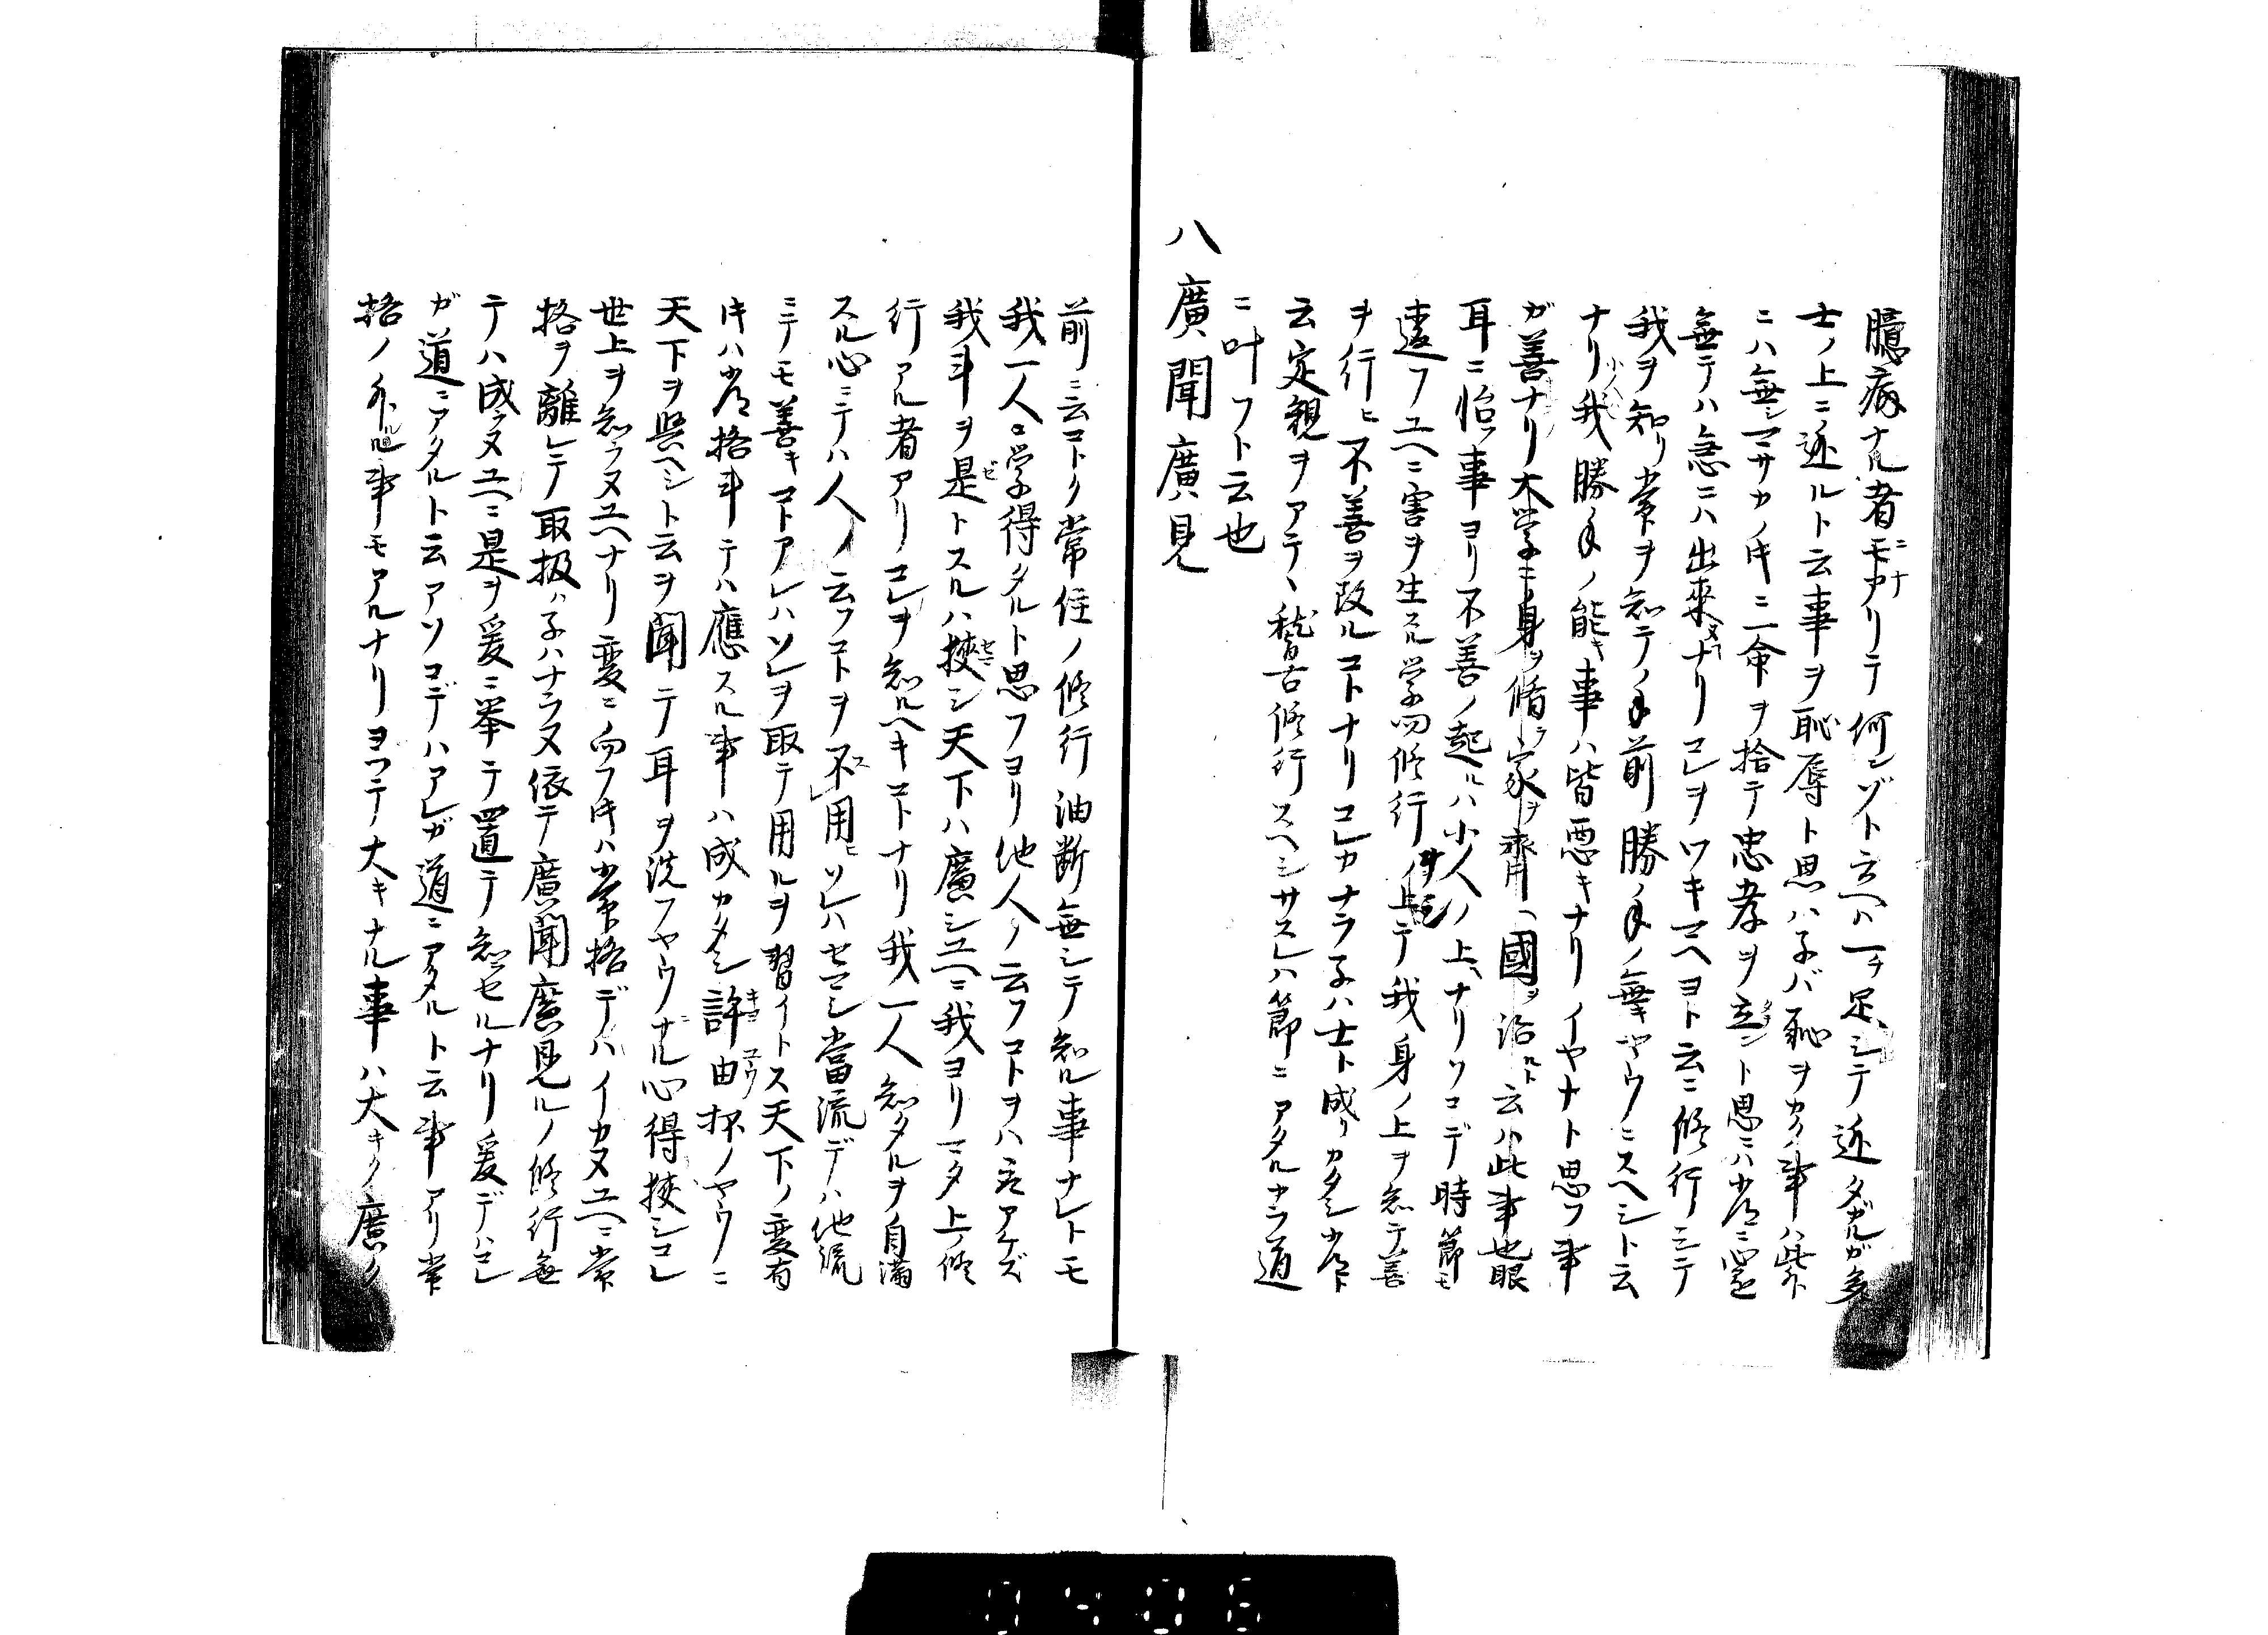 臆病ナル者ニナリテ何ンゾト云ヘハ一チ足シテ逃タガルガ多
士ノ上ニ逃ルト云事ヲ恥辱ト思ハ子バ恥ヲカク事ハ此外
ニハ無シマサカノ時ニ一命ヲ捨テ忠孝ヲ立ント思ニハ常ニ覚
無テハ急ニハ出来ヌナリコレヲワキマヘヨト云ニ修行シテ
我ヲ知リ常ヲ知テ手前勝手ノ無キヤウニスヘシト云
ナリ我勝手ノ能キ事ハ皆悪キナリイヤナト思フ事
ガ善ナリ大学ニ身ヲ脩ラ家ヲ齊ヘ國ヲ治ルト云ハ此事也眼
耳ニ怡フ事ヨリ不善ノ起ルハ小人ノ上ヘナリソコデ時節モ
違フユヘニ害ヲ生スル学問修行ノ上ニテ我身ノ上ヲ知テ善
ヲ行ヒ不善ヲ改ルコトナリコレカナラ子ハ士ト成リカタシ常ト
云定規ヲアテヽ稽古修行スヘシサスレハ節ニアタルナラ道
ニ叶フト云也
八 廣聞廣見
前ニ云コトク常住ノ修行油断無シテ知ル事ナレトモ
我一人ニ学得タルト思フヨリ他人ノ云フコトヲハ言アケズ
我斗ヲ是トスルハ挾シ天下ハ廣シユヘニ我ヨリマタ上ノ修
行アル者アリコレヲ知ルヘキコトナリ我一人知タルヲ自満
スル心ニテハ人ノ云フコトヲ不用ヒソレハセマシ當流デハ他流
ニテモ善キコトアレハソレヲ取テ用ルヲ習イトス天下ノ変有
時ハ常格斗テハ應スル事ハ成カタシ許由抔ノヤウニ
天下ヲ與ヘシト云ヲ聞テ耳ヲ洗フヤウナル心得挾シコレ
世上ヲ知ラヌユヘナリ変ニ向フ時ハ常格デハイカヌユヘニ常
格ヲ離レテ取扱ハ子ハナラヌ依テ廣聞廣見ルノ修行無
テハ成ラヌユヘニ是ヲ爰ニ挙テ置テ知ラセルナリ爰デハコレ
ガ道ニアタルト云アソコデハアレガ道ニアタルト云事アリ常
格ノ外ル事モアルナリヨツテ大キナル事ハ大キク廣ク